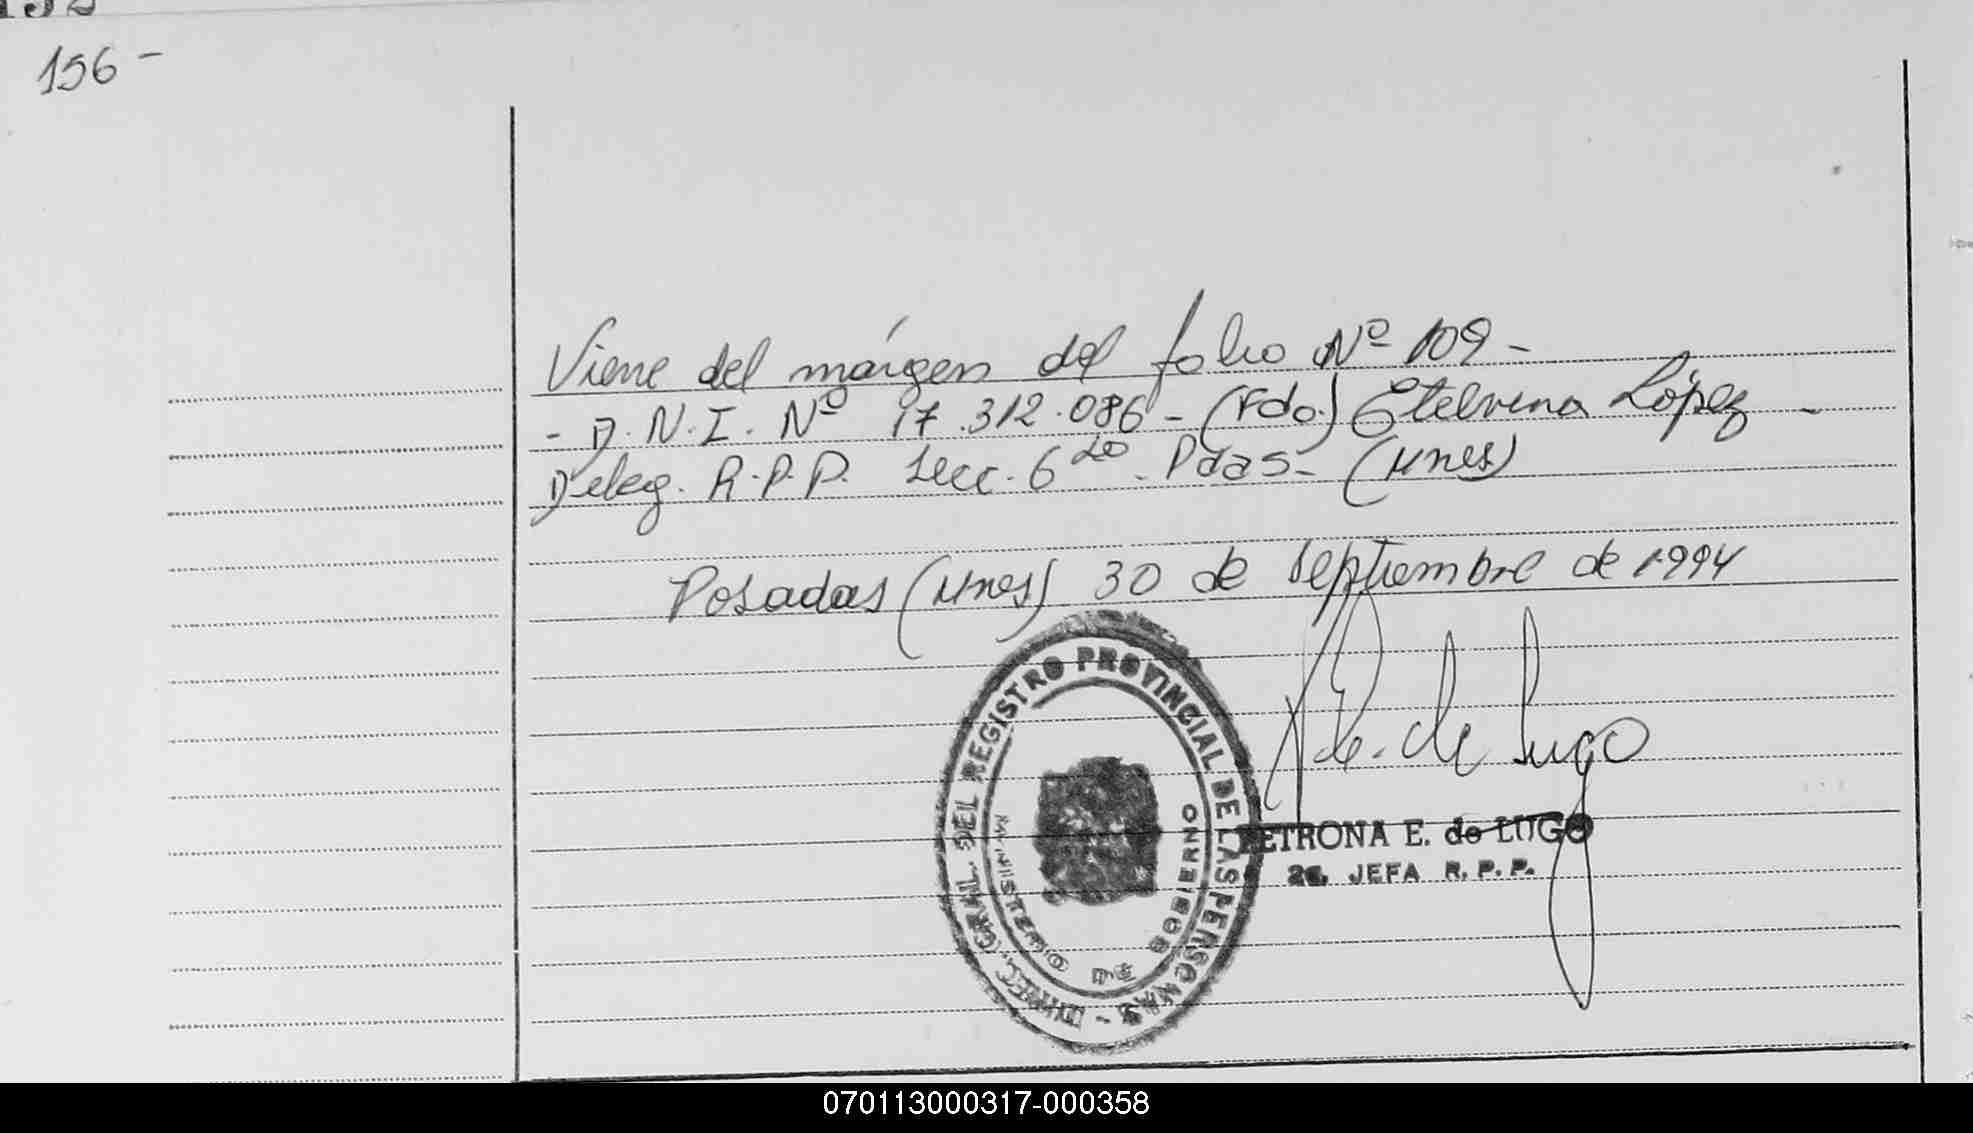 156 -
Viene del márgen del folio Nº 109 -
- D.N.I. Nº 17.312.086 - (Fdo.) Etelvina López -
Deleg. R.P.P. Secc. 6 - Pdas - (Mnes)
Posadas (Mnes) 30 de Septiembre de 1994
P.E. de Lugo
DIREC. GRAL. DEL REGISTRO PROVINCIAL DE LAS PERSONAS -
MINISTERIO DE GOBIERNO
PETRONA E. de LUGO
JEFA R. P. P.
070113000317-000358